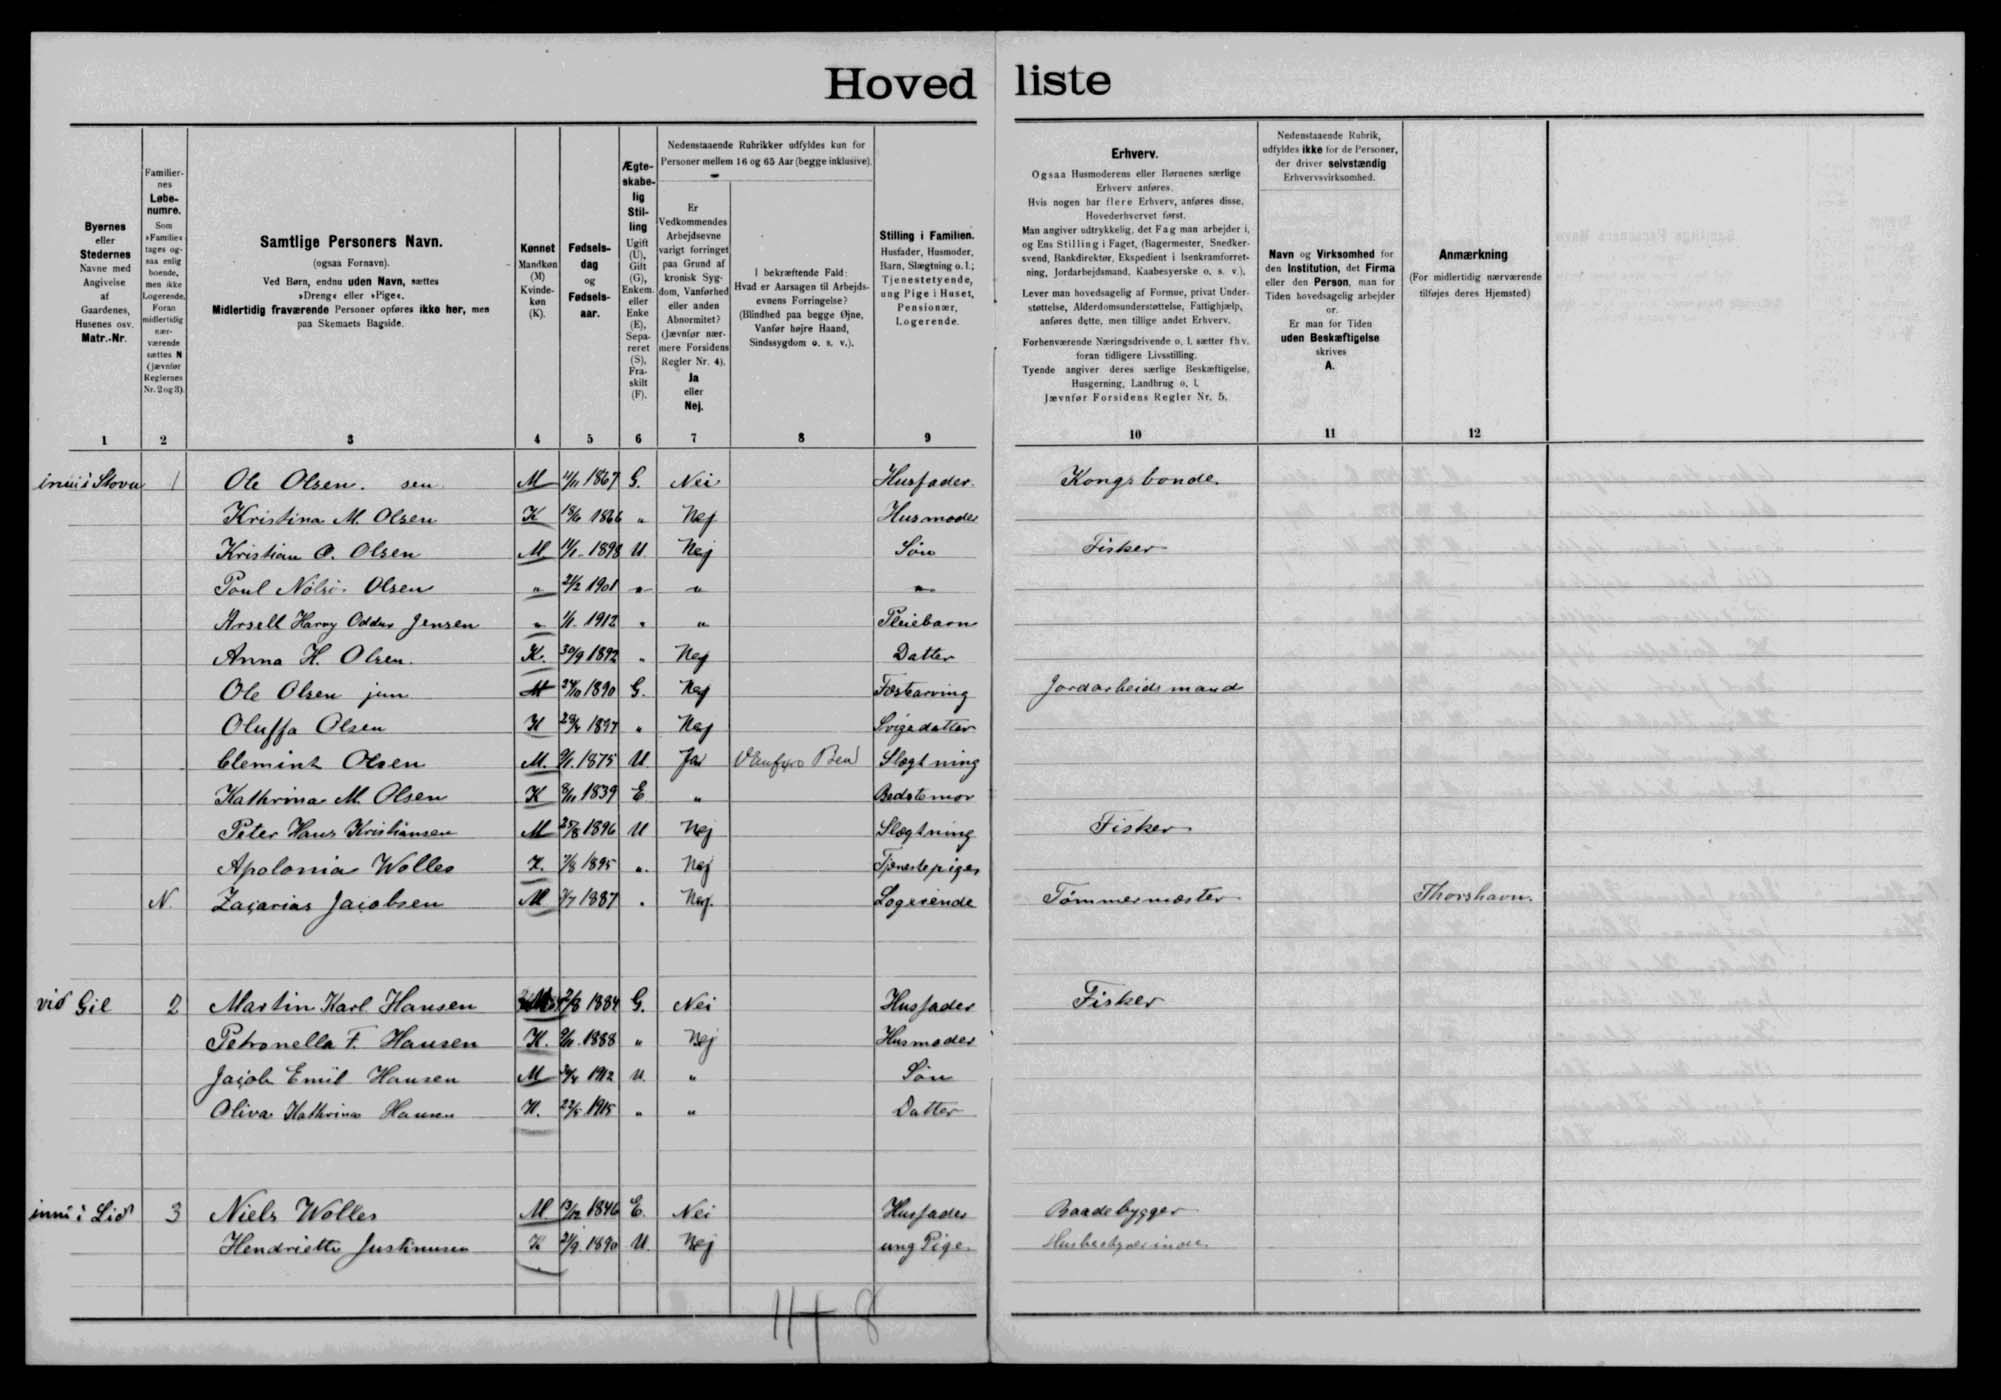 Hovedliste
Byernes eller Stedernes Navne med Angivelse af Gaardenes, Husenes osv. Matr.-Nr.
Familiernes Løbenumre. Som »Familie« tages ogsaa enlig boende, men ikke Logerende, Foran midlertidig nærværende sættes N (jævnfør Reglernes Nr. 2 og 3).
Samtlige Personers Navn.
(ogsaa Fornavn).
Ved Børn, endnu uden Navn, sættes »Dreng« eller »Pige«.
Midlertidig fraværende Personer opføres ikke her, men paa Skemaets Bagside.
Kønnet Mandkøn (M) Kvindekøn (K).
Fødselsdag og Fødselsaar.
Ægteskabelig Stilling Ugift (U), Gift (G), Enkem. eller Enke (E), Separeret (S), Fraskilt (F).
Nedenstaaende Rubrikker udfyldes kun for Personer mellem 16 og 65 Aar (begge inklusive).
Er Vedkommendes Arbejdsevne varigt forringet paa Grund af kronisk Sygdom, Vanførhed eller anden Abnormitet? (Jævnfør nærmere Forsidens Regler Nr. 4). Ja eller Nej.
I bekræftende Fald: Hvad er Aarsagen til Arbejdsevnens Forringelse? (Blindhed paa begge Øjne, Vanfør højre Haand, Sindssygdom o. s. v.).
Stilling i Familien. Husfader, Husmoder, Barn, Slægtning o. l.; Tjenestetyende, ung Pige i Huset, Pensionær, Logerende.
Erhverv.
Ogsaa Husmoderens eller Børnenes særlige Erhverv anføres.
Hvis nogen har flere Erhverv, anføres disse, Hovederhvervet først.
Man angiver udtrykkelig, det Fag man arbejder i, og Ens Stilling i Faget, (Bagermester, Snedkersvend, Bankdirektør, Ekspedient i Isenkramforretning, Jordarbejdsmand, Kaabesyerske o. s. v.).
Lever man hovedsagelig af Formue, privat Understøttelse, Alderdomsunderstøttelse, Fattighjælp, anføres dette, men tillige andet Erhverv.
Forhenværende Næringsdrivende o. l. sætter fhv. foran tidligere Livsstilling.
Tyende angiver deres særlige Beskæftigelse, Husgerning, Landbrug o. l.
Jævnfør Forsidens Regler Nr. 5.
Nedenstaaende Rubrik, udfyldes ikke for de Personer, der driver selvstændig Erhvervsvirksomhed.
Navn og Virksomhed for den Institution, det Firma eller den Person, man for Tiden hovedsagelig arbejder for.
Er man for Tiden uden Beskæftigelse skrives A.
Anmærkning
(For midlertidig nærværende tilføjes deres Hjemsted)
1 2 3 4 5 6 7 8 9 10 11 12
inni i Stovu 1 Ole Olsen. sen. M 1867 G. Nei Husfader. Kongsbonde.
Kristina M. Olsen K 1866 " Nej Husmoder
Kristian O. Olsen M 1898 U Nej Søn Fisker
Poul Nolsö Olsen " 1901 " " "
Harry Oddur Jensen " 1912 " " Pleiebarn
Anna H. Olsen. K. 30/9 1892 " Nej Datter
Ole Olsen jun M 1890 G. Nej Fostarving Jordarbeidsmand
Oluffa Olsen K 1897 " Nej Svigedatter
Clemint Olsen M. 1875 U Ja Ben Slægtning
Kathrina M. Olsen K 1839 E " Bedstemor
Peter Hans Kristiansen M 1896 U Nej Slægtning Fisker
Apolonia Wolles K. 1895 " Nej Tjenestepiges
N. Zacarias Jacobsen M 1887 " Nej Logerende Tømmermester Thorshavn.
við Gil 2 Martin Karl Hansen M 1884 G. Nei Husfader Fisker
Petronella F. Hansen K. 1888 " Nej Husmoder
Jacob Emil Hansen M 1912 U. " Søn
Oliva Kathrina Hansen K. 1915 " " Datter
inni i Lið 3 Niels Wolles M. 1846 E. Nei Husfader Baadebygger
Hendrietta Justinusen K 1890 U. Nej ung Pige Husbestyrerinde